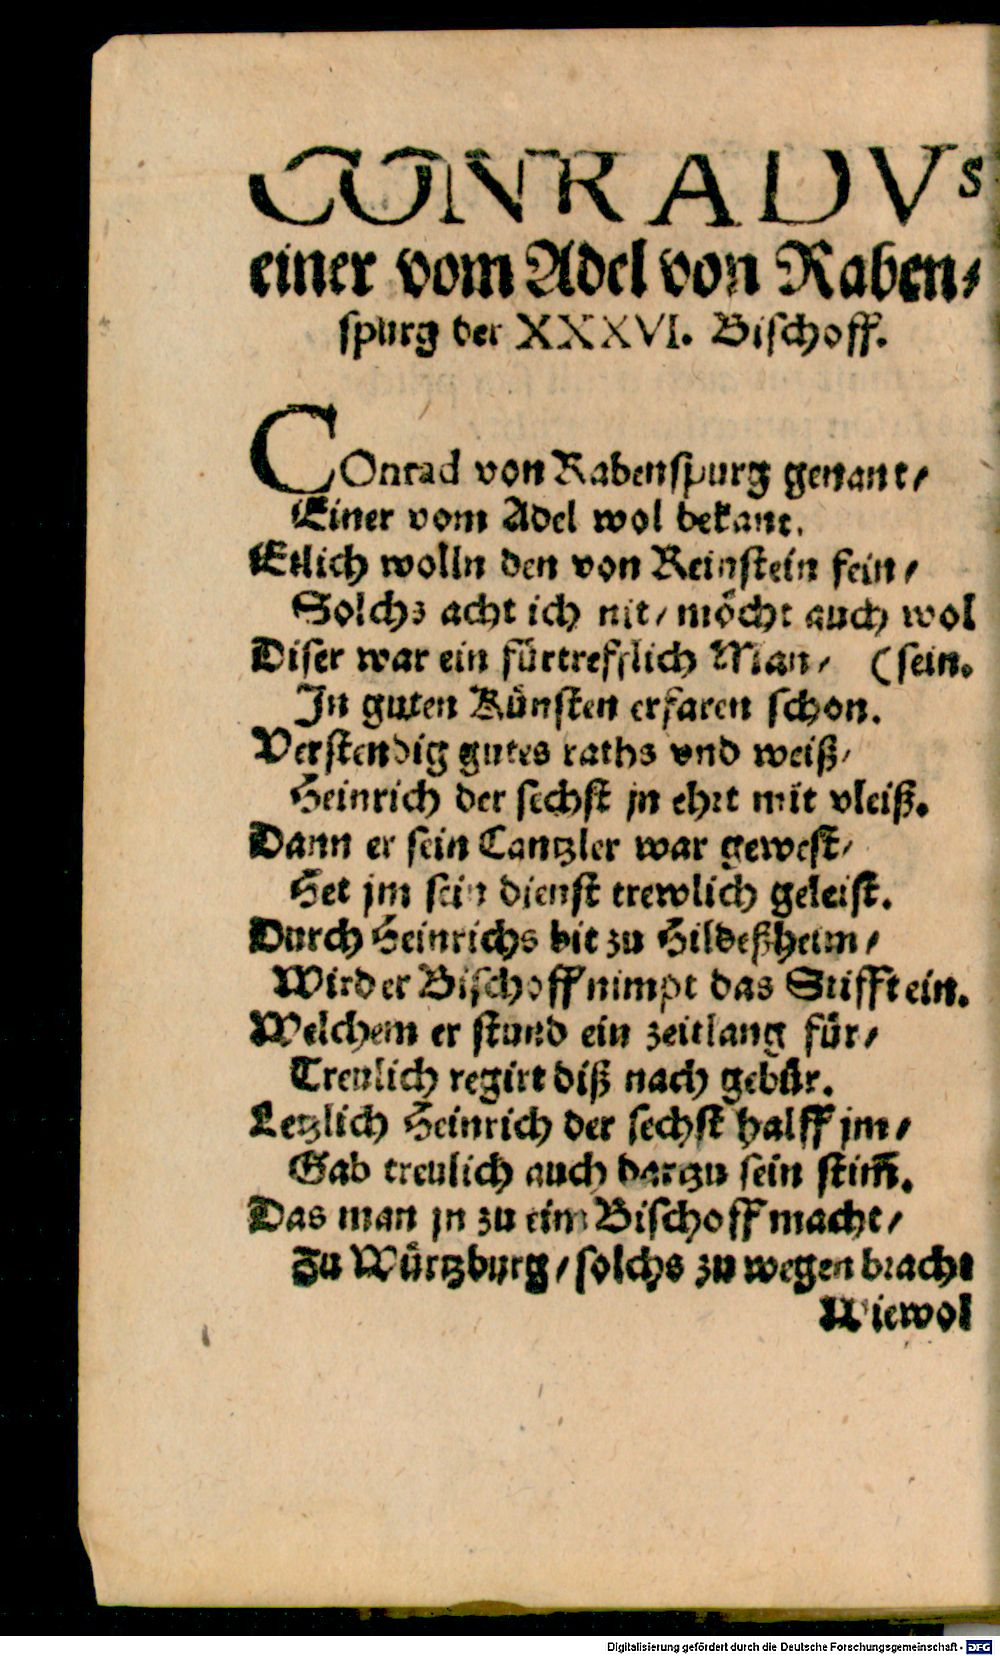 CONRADVs
einer vom Adel von Raben⸗
spurg der XXXVI. Bischoff.
COnrad von Rabenspurg genant/
Einer vom Adel wol bekant.
Etlich wolln den von Reinstein fein/
Solchs acht ich nit/ möcht auch wol
Diser war ein fürtrefflich Man/ (sein.
In guten Künsten erfaren schon.
Verstendig gutes raths vnd weiß/
Heinrich der sechst jn ehrt mit vleiß.
Dann er sein Cantzler war gewest/
Het jm sein dienst trewlich geleist.
Durch Heinrichs bit zu Hildeßheim/
Wird er Bischoff nimpt das Stifft ein.
Welchem er stund ein zeitlang für/
Treulich regirt diß nach gebür.
Letzlich Heinrich der sechst halff jm/
Gab treulich auch dartzu sein stim̃.
Das man jn zu eim Bischoff macht/
Zu Würtzburg/ solchs zu wegen bracht
Wiewol
Digitalisierung gefördert durch die Deutsche Forschungsgemeinschaft - DFG